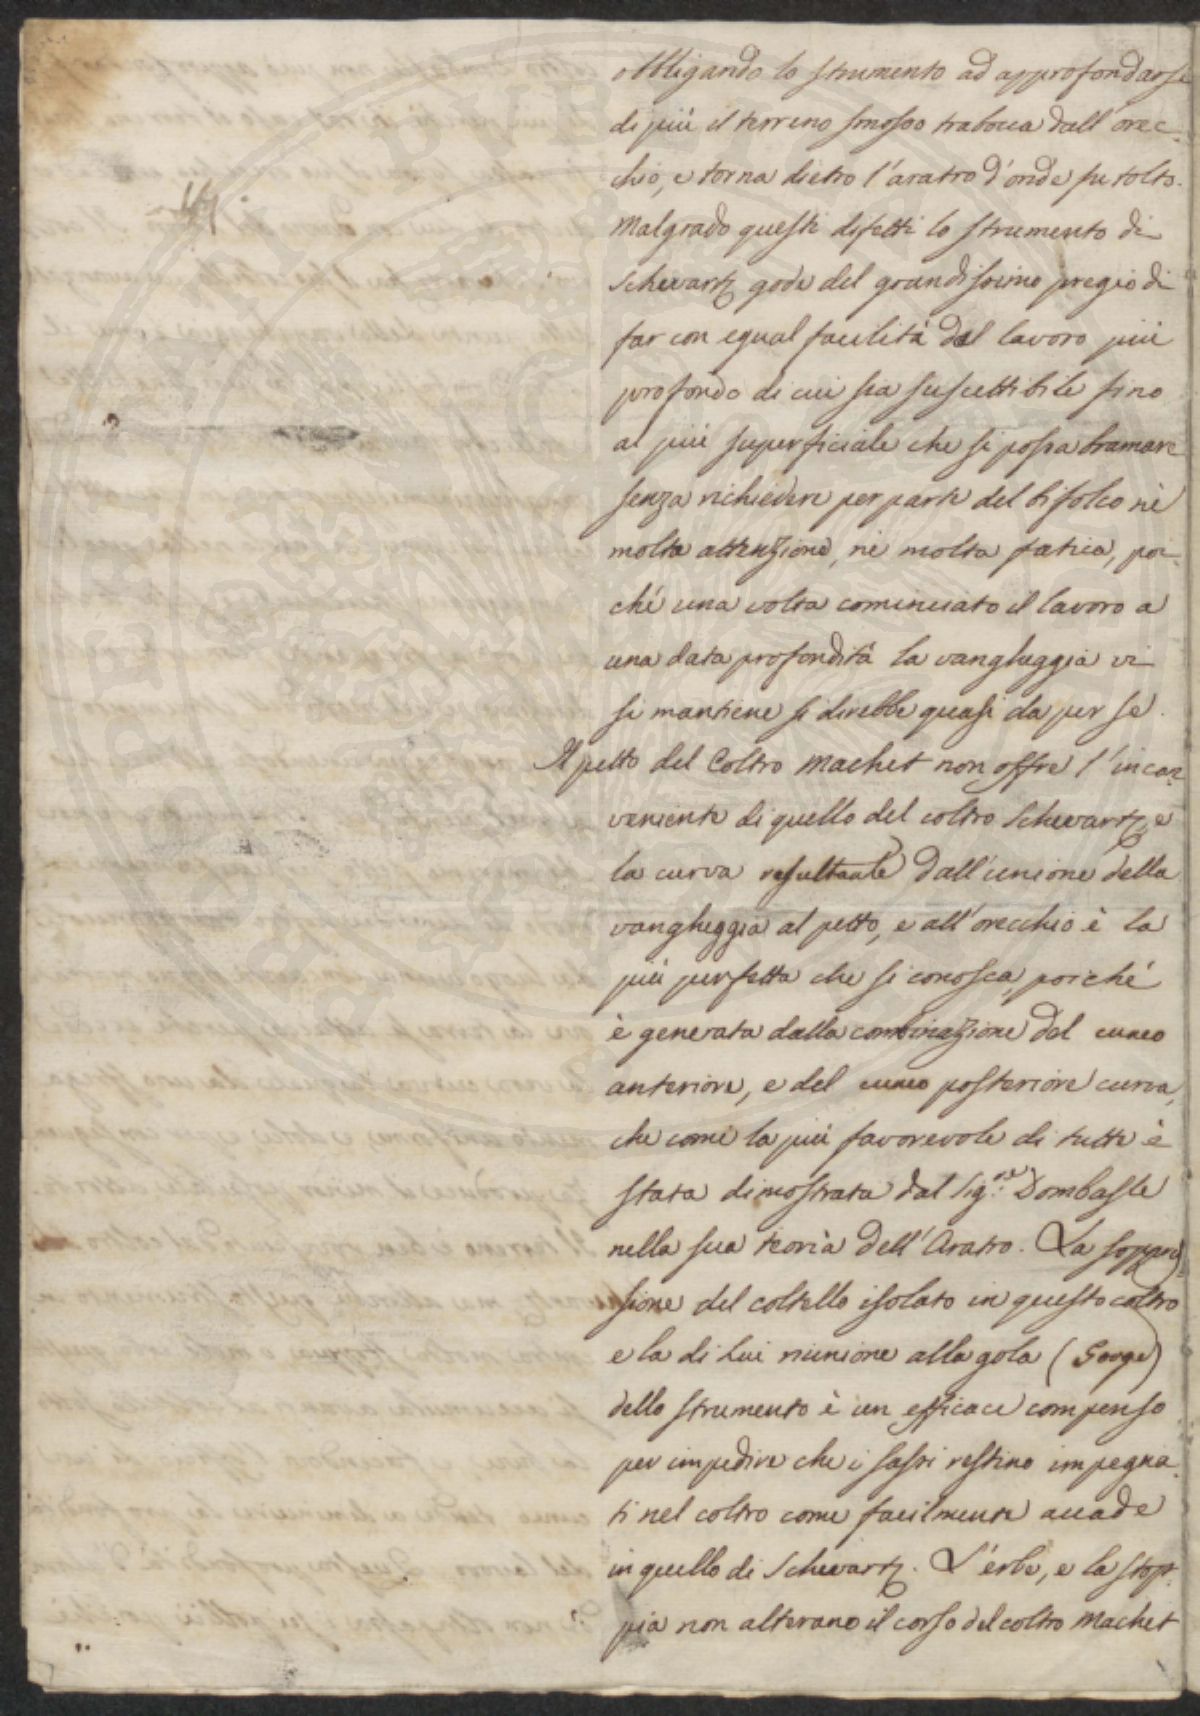 obbligando lo strumento ad approfondarsi
di più il terreno smosso trabocca dall'orec-
chio, e torna dietro l'aratro d'onde fu tolto.
Malgrado questi difetti lo strumento di
Schwartz gode del grandissimo pregio di
far con egual facilità dal lavoro più
profondo di cui sia suscettibile fino
al più superficiale che si possa bramare
senza richiedere per parte del bifolco nè
molta attenzione, nè molta fatica, poi-
chè una volta cominciato il lavoro a
una data profondità la vangheggia vi
si mantiene si direbbe quasi da per se.
Il petto del Coltro Machet non offre l'incon-
veniente di quello del coltro Schwartz, e
la curva resultante dall'unione della
vangheggia al petto, e all'orecchio è la
più perfetta che si conosca, poichè
è generata dalla combinazione del cuneo
anteriore, e del cuneo posteriore curva,
che come la più favorevole di tutte è
stata dimostrata dal Sig.re Dombasle
nella sua teoria dell'Aratro. La soppres-
sione del coltello isolato in questo coltro
e la di Lui riunione alla gola (Gorge)
dello strumento è un efficace compenso
per impedire che i sassi restino impegna-
ti nel coltro come facilmente accade
in quello di Schwartz. L'erbe, e la stop-
pia non alterano il corso del coltro Machet